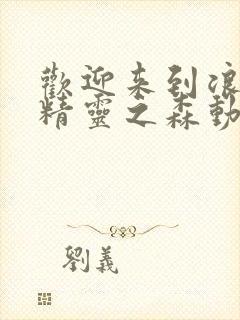 歡迎来到浪
精靈之森動
劉義